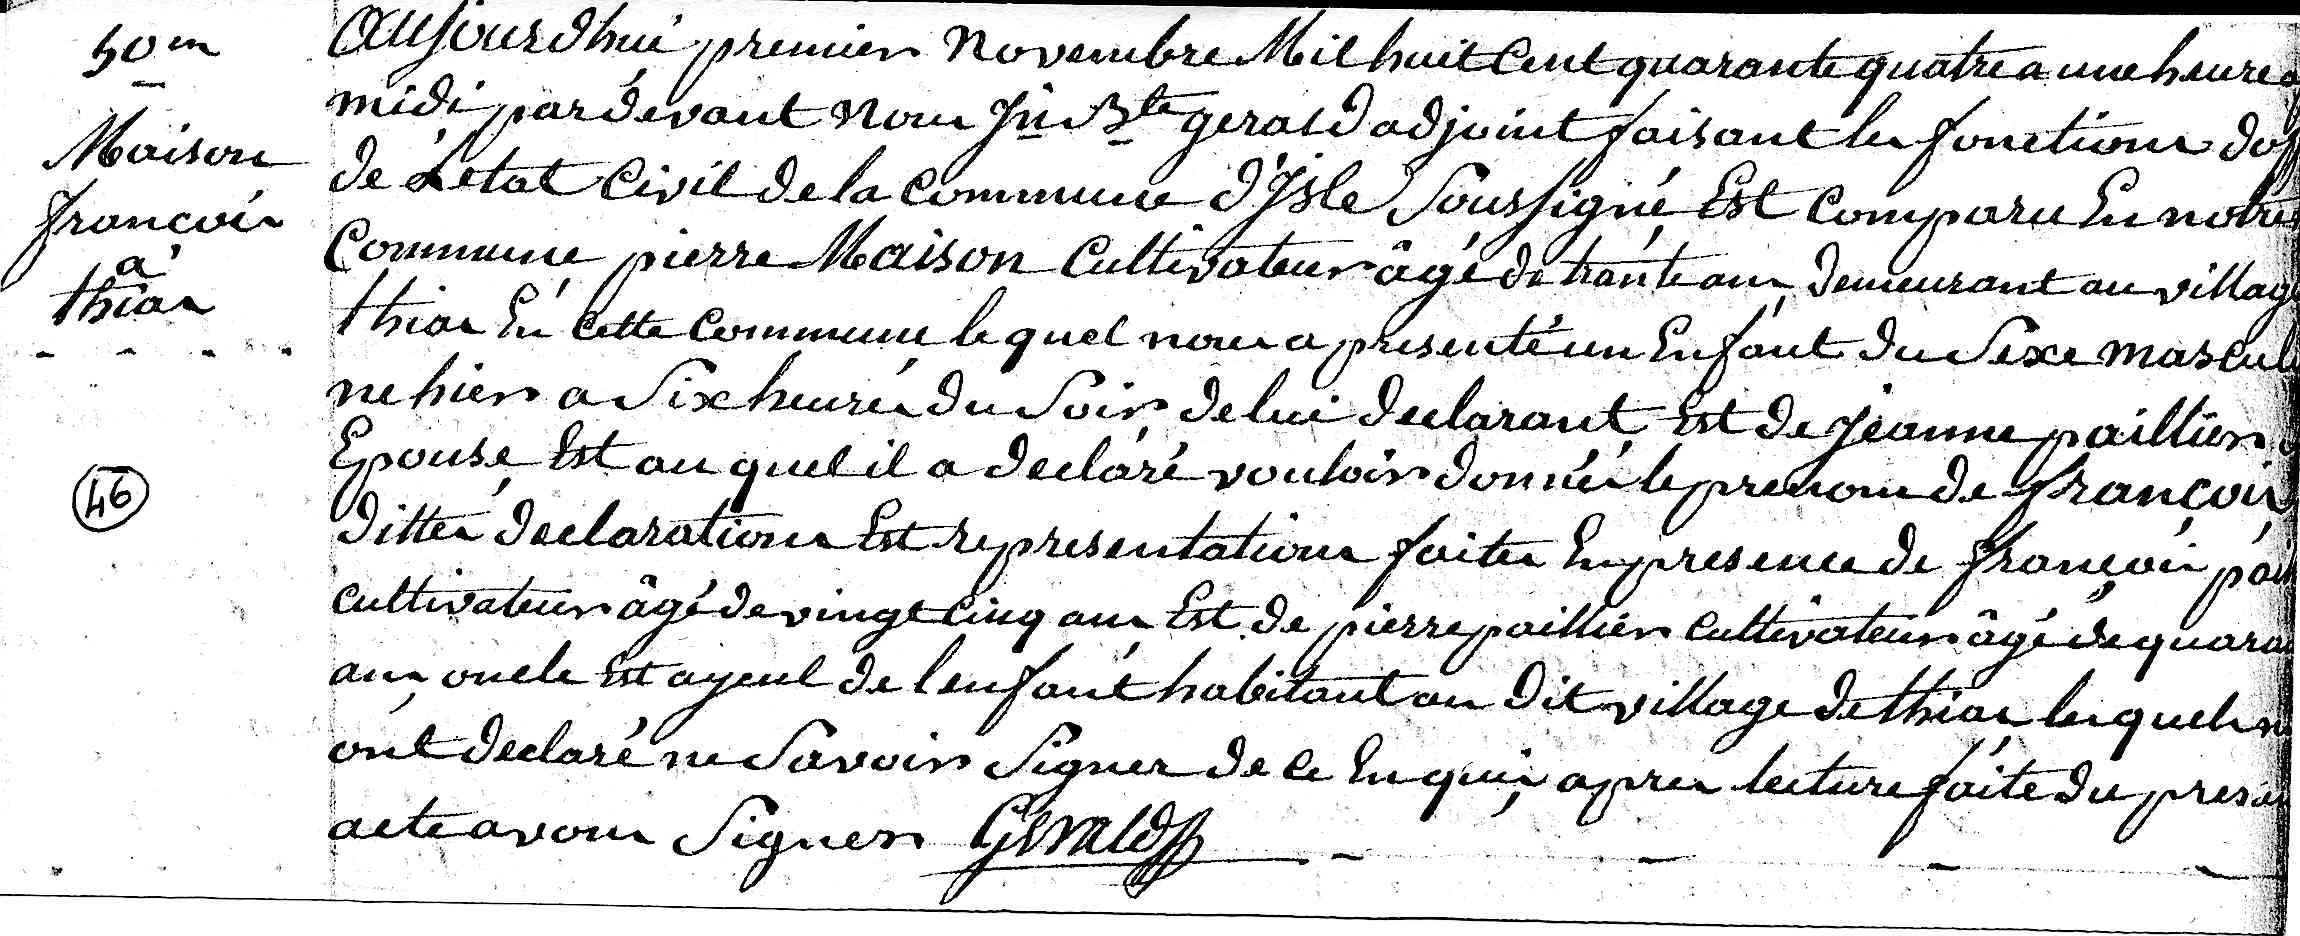 50em
Maison
françois
à
thias
46
Aujourdhui premier Novembre Mil huit Cent quarante quatre a une heure
midi par devant Nous Jn Bte gerald adjoint faisant les fonctions dof
de Létat Civil de la Commune d'Isle Soussigné Est Comparu En notre
Commune pierre Maison Cultivateur âgé de trante ans, demeurant au village
thias En cette Commune le quel nous a presenté un Enfant du Sexe mascul
ne hier a Six heures du Soir de lui declarant Est de jeanne paillier
Epouse, Est au quel il a declaré vouloir donnér le prenom de françois
dittes declarations Est representations faites En presence de françois pail
cultivateur âgé de vingt cinq ans Est de pierre paillier cultivateur âgé de quaran
ans, oncle Est ayeul de lenfant habitant au dit village de thias, lesquels n
ont declaré ne Savoir Signer de ce Enquis, apres lecture faite du presen
acte avons Signer Gerald